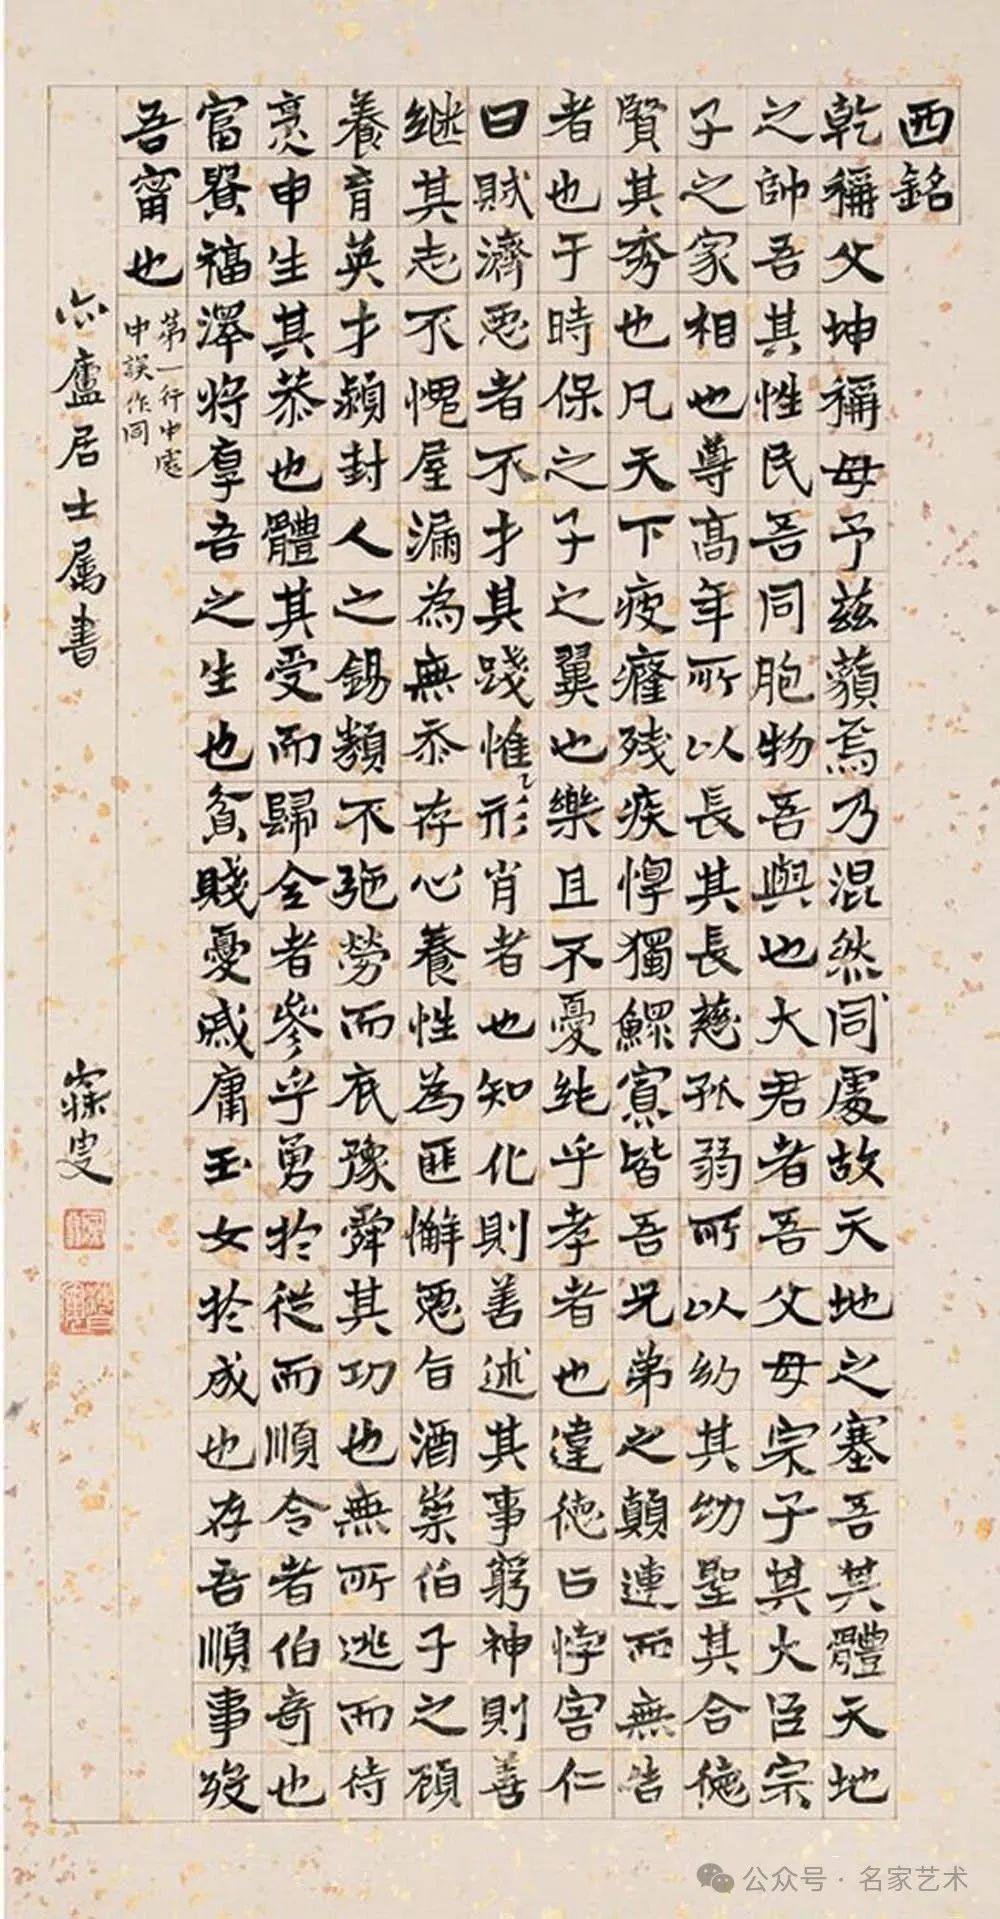 西銘
乾稱父坤稱母予茲藐焉乃混然同處故天地之塞吾其體天地
之帥吾其性民吾同胞物吾與也大君者吾父母宗子其大臣宗
子之家相也尊高年所以長其長慈孤弱所以幼其幼聖其合德
賢其秀也凡天下疲癃残疾惸獨鰥寡皆吾兄弟之顛連而無告
者也于時保之子之翼也樂且不憂純乎孝者也違德曰悖害仁
曰賊濟惡者不才其踐惟形肖者也知化則善述其事窮神則善
継其志不愧屋漏為無忝存心養性為匪懈惡旨酒崇伯子之顧
養育英才潁封人之錫類不弛勞而底豫舜其功也無所逃而待
烹申生其恭也體其受而歸全者參乎勇於從而順令者伯奇也
富貴福澤将厚吾之生也貧賤憂戚庸玉女於成也存吾順事歿
吾甯也
第一行中處
中誤作同
亦廬居士属書
寐叟
公众号·名家艺术